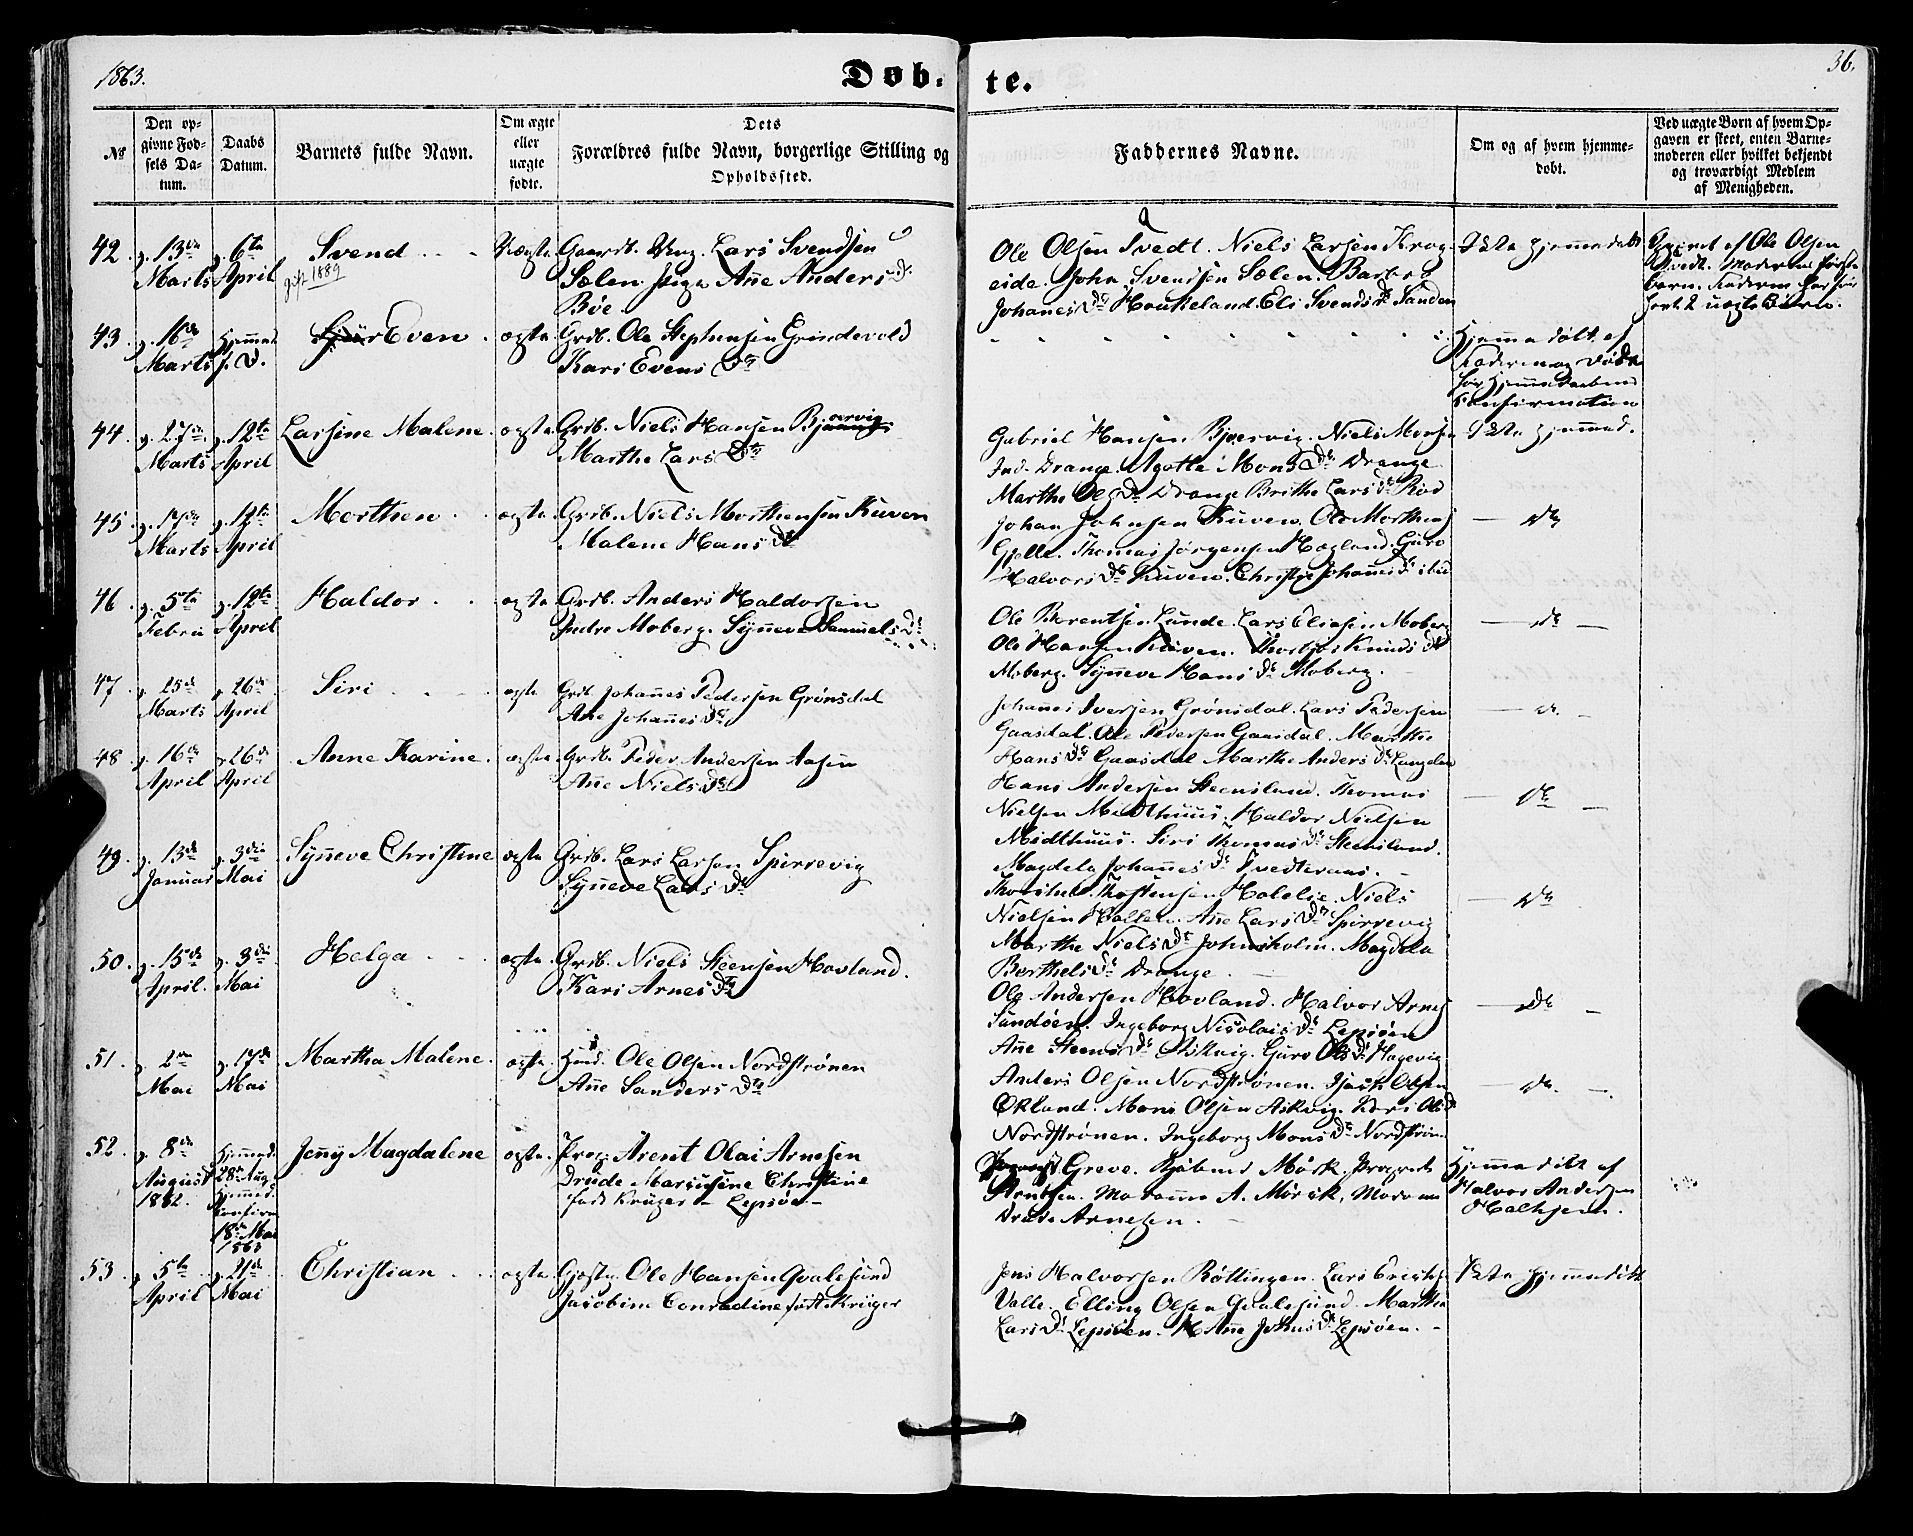 1863.
Døb-
te.
36.
№
Den op-
givne Fød-
sels Da-
tum.
Daabs
Datum.
Barnets fulde Navn.
Om ægte
eller
uægte
fødte.
Dets
Forældres fulde Navn, borgerlige Stilling og
Opholdssted.
Faddernes Navne.
Om og af hvem hjemme-
døbt.
Ved uægte Børn af hvem Op-
gaven er skeet, enten Barne-
moderen eller hvilket bekjendt
og troværdigt Medlem
af Menigheden.
42. 13de Marts 6te April Svend Uægte Gaardb. Ung. Lars Svendsen
gift 1889
Sælen. Pige Anne Anders Dr
Bøe
Ole Olsen Tvedt. Niels Larsen Krog-
eide. John Svendsen Sælen. Barbro
Johanes Dr Haukeland. Eli Svends Dr Sanden
Ikke hjemmedøbt
Opgivet af Ole Olsen
Tvedt. Moderens første
Barn. Faderen har før
havt 2 uægte Børn.
43. 16de Marts Hjemmed. s. D. Even ægte Grdb. Ole Stephensen Grindevold
Kari Evens Dtr
Hjemmedøbt af
Faderen og døde
før Hjemmedaabens
Confirmation
44. 27de Marts 12te April Larsine Malene ægte Grdb. Niels Hansen Bjørvig
Marthe Lars Dtr
Gabriel Hansen Bjørvig. Niels Monsen
Ind. Drange. Agathe Mons Dr Drange
Marthe Ols Dr Drange Brithe Lars Dr Rød
Ikke hjemmed.
45. 17de Marts 12te April Morthen ægte Grdb. Niels Morthensen Kuven
Malene Hans Dr
Johan Johnsen Kuven. Ole Morthens
Gjelle. Thomas Jørgensen Hægland. Guro
Halvors Dr Kuven. Christie Johannes Dr ibid
Do
46. 5te Febru 12te April Haldor ægte Grdb. Anders Haldorsen
Indre Moberg. Synneve Samuels Dr
Ole Berentsen Lunde. Lars Eliasen Moberg
Ole Hansen Kuven. Knuds Dr
Moberg. Synneve Hans Dr Moberg.
Do
47. 25de Marts 26de April Siri ægte Grdb. Johannes Pedersen Grønsdal
Ane Johannes Dr
Johannes Iversen Grønsdal. Lars Pedersen
Gaasdal. Ole Pedersen Gaasdal. Marthe
Hans Dr Gaasdal Marthe Anders Dr
Do
48. 16de April 26de April Anne Karine ægte Grdb. Peder Andersen Aasen
Ane Niels Dr
Hans Andersen Steensland. Thomas
Nielsen Midthuus. Haldor Nielsen
Midthuus. Siri Thomas Dr Steensland.
Magdela Johannes Dr Tvedteraas.
Do
49. 13de Januar 3die Mai Synneve Christine ægte Grdb. Lars Larsen Spirrevig
Synneve Lars Dr
Thorstensen Hatlelie. Niels
Nielsen Hatlen. Ane Lars Dr Spirrevig
Marthe Niels Dr Johnsholm. Magdela
Berthels Dr Drange.
Do
50. 15de April 3die Mai Helga ægte Grdb. Niels Steensen Hovland.
Kari Arnes Dtr
Ole Andersen Hovland. Halvor Arnes
Sundøen. Ingeborg Nicolais Dr Lepsøen
Ane Steens Dr Askvig. Guro Ols Dr Hagevig
Do
51. 2den Mai 17de Mai Martha Malene ægte Huusm. Ole Olsen Nordstrønen
Ane Sanders Dtr
Anders Olsen Nordstrønen. Isach Olsen
Økland. Mons Olsen Askvig. Kari Ols Dr
Nordstrønen. Ingeborg Mons Dr Nordstrøn
Do
52. 8de August 1862. Hjemmed. 28de Aug. Hjemmed. Confirm. 18de Mai 1863 Jenny Magdalene ægte Prop. Arent Olai Arnesen
Drude Marsiliene Christine
født Krüger – Lepsøe –
Greve. Kjøbmd Mørk, Proprietr
Arntsen. Madamme A. Mørck, Madamm
Drude Arnesen.
Hjemmedøbt af
Halvor Andersen
Halhjem.
53. 5te April 21de Mai Christian ægte Gjæstg. Ole Hansen Qvalesund
Jacobine Conradine født Krüger
Jens Halvorsen Røttingen. Lars
Valle. Elling Olsen Qvalesund. Marthe
Lars Dr Lepsøen. Ane Johns Dr Lepsøen.
Ikke hjemmedøbt